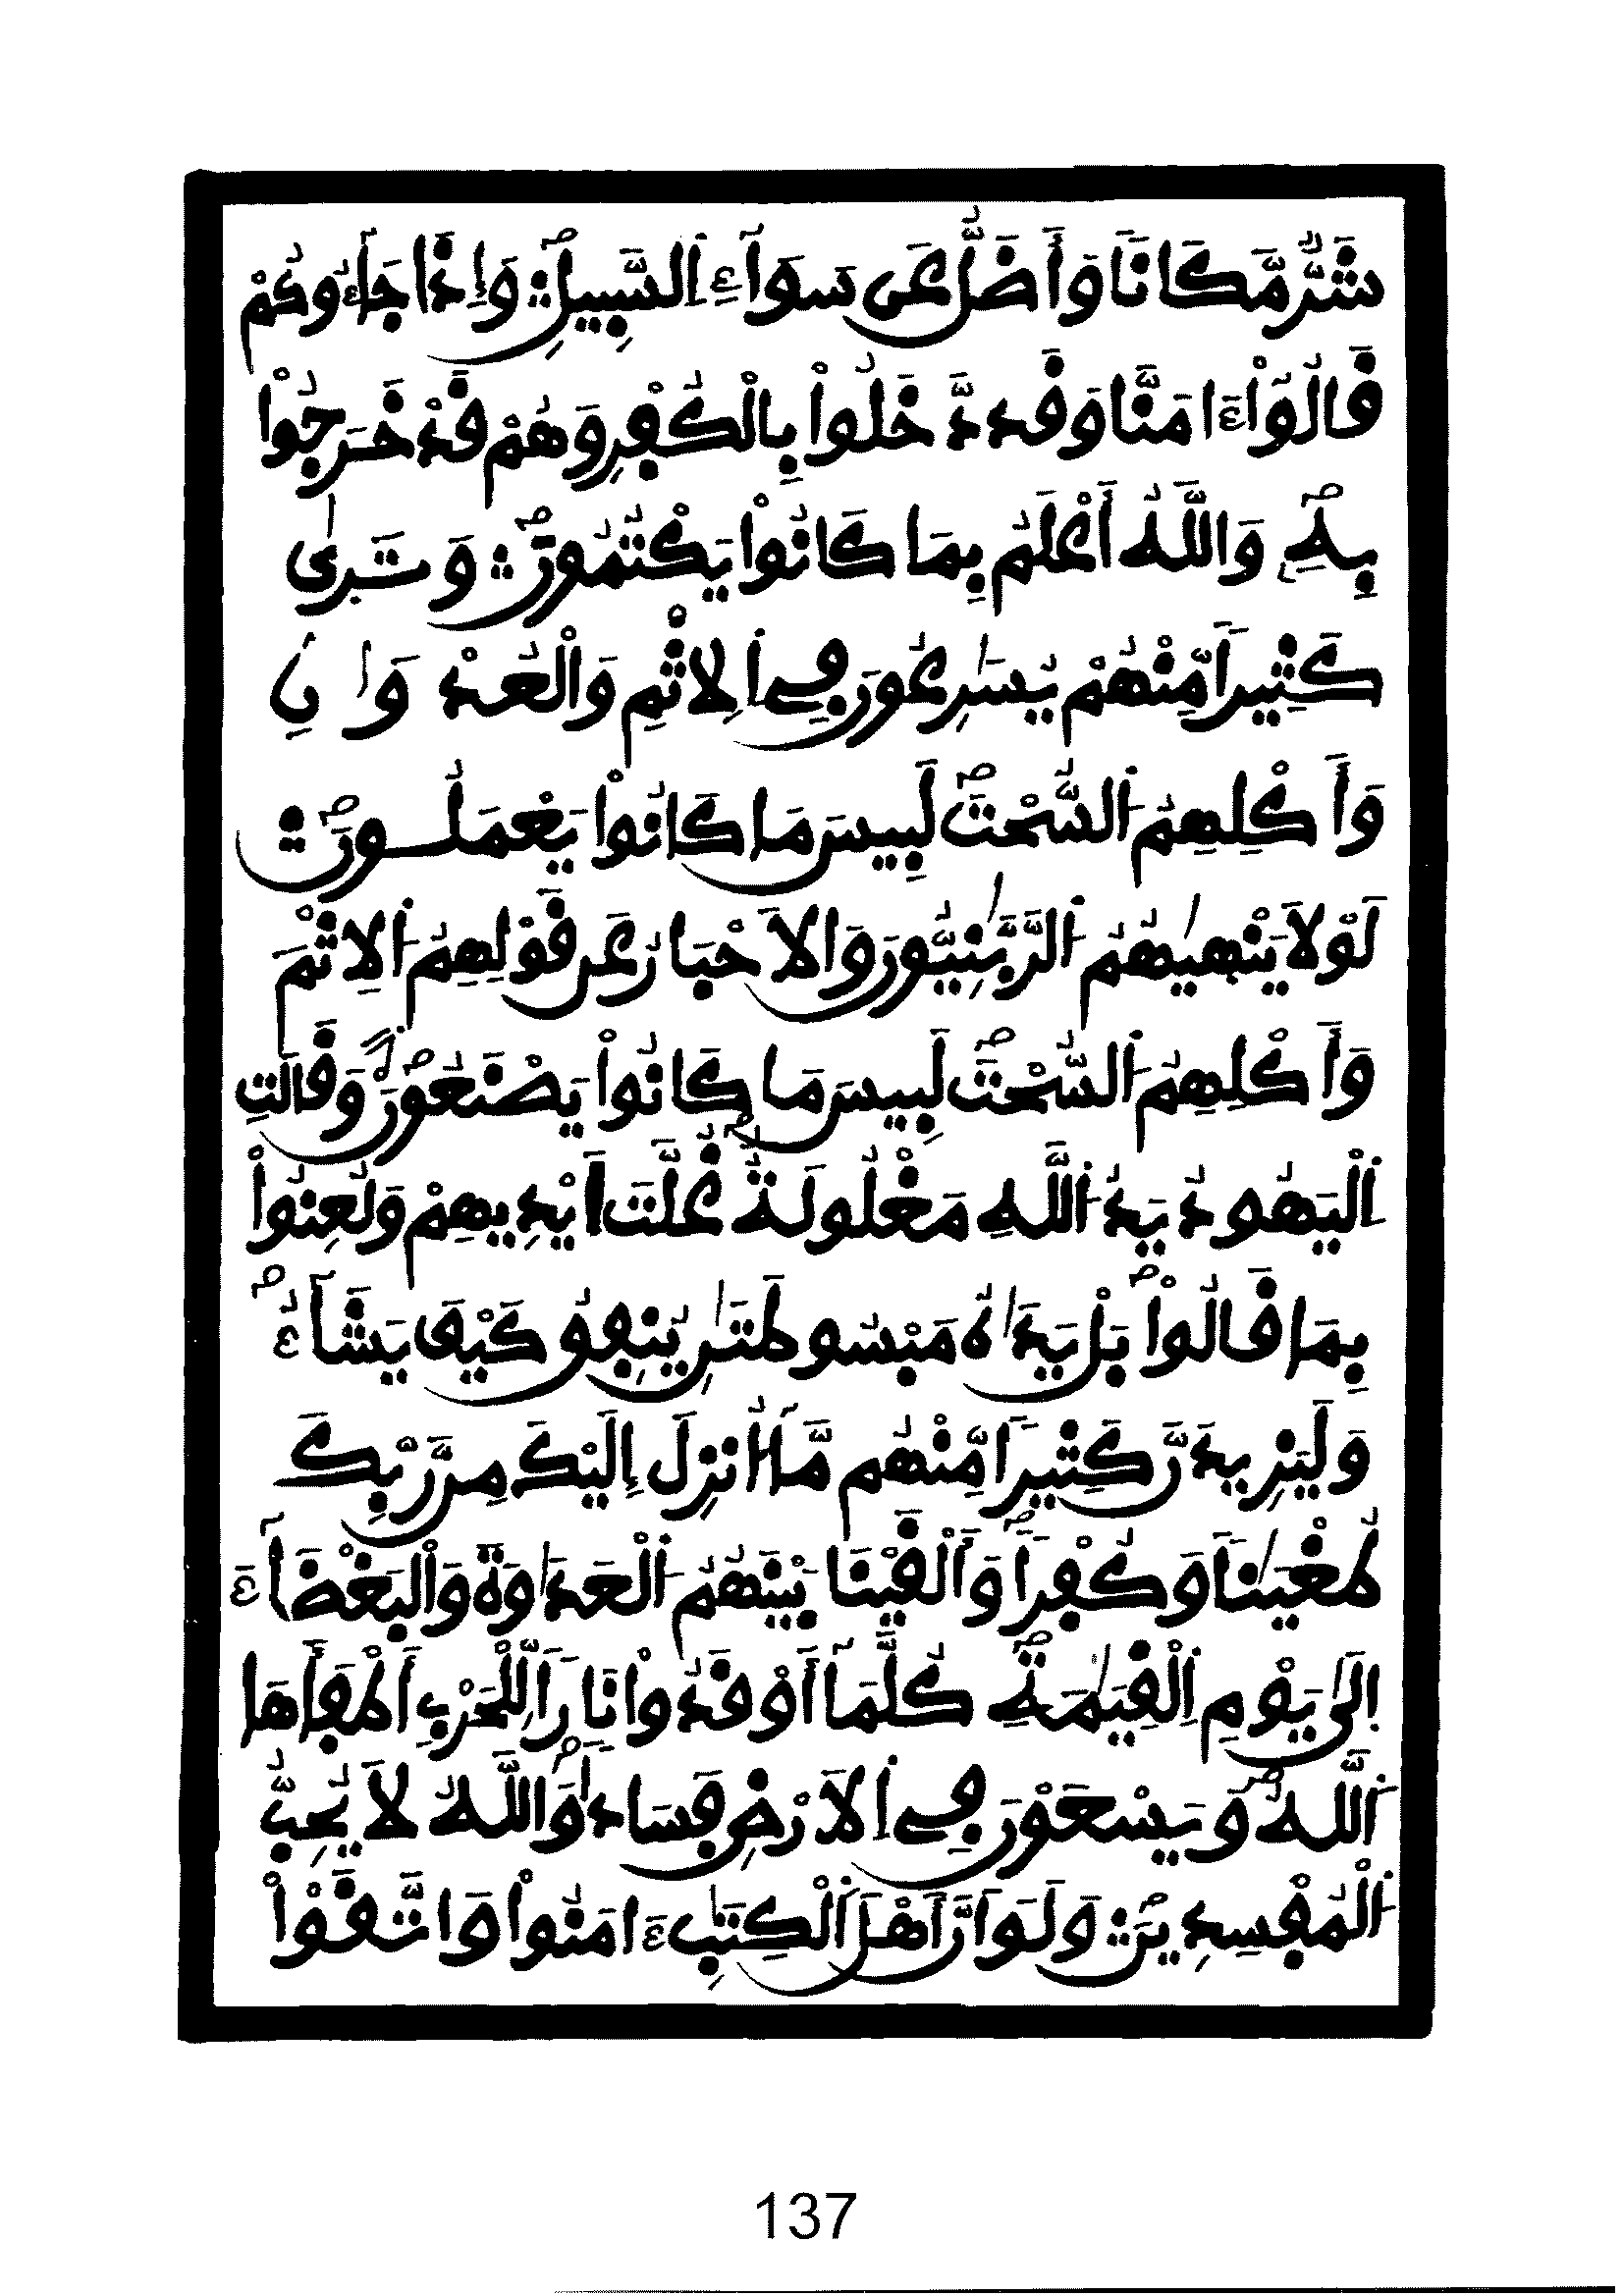 شَرٌّ مَّكَانَا وَأَضَلُّ عَن سَوَآءِ اَ۬لسَّبِيلِۖ وَإِذَا جَآءُوكُمْ
قَالُوٓاْ ءَامَنَّا وَقَد دَّخَلُواْ بِالْكُفْرِ وَهُمْ قَدْ خَرَجُواْ
بِهِۦۖ وَاللَّهُ أَعْلَمُ بِمَا كَانُواْ يَكْتُمُونَۖ وَتَرٜىٰ
كَثِيراٗ مِّنْهُمْ يُسَٰرِعُونَ فِے اِ۬لِاثْمِ وَالْعُدْوَٰنِ
وَأَكْلِهِمُ اُ۬لسُّحْتَۖ لَبِيسَ مَا كَانُواْ يَعْمَلُونَۖ
لَوْلَا يَنْهَيٰهُمُ اُ۬لرَّبَّٰنِيُّونَ وَالَاحْبَارُ عَن قَوْلِهِمُ اُ۬لِاثْمَ
وَأَكْلِهِمُ اُ۬لسُّحْتَۖ لَبِيسَ مَا كَانُواْ يَصْنَعُونَۖ وَقَالَتِ
اِ۬لْيَهُودُ يَدُ اُ۬للَّهِ مَغْلُولَةٌۖ غُلَّتَ اَيْدِيهِمْ وَلُعِنُواْ
بِمَا قَالُواْۖ بَلْ يَدَٰهُ مَبْسُوطَتَٰنِ يُنفِقُ كَيْفَ يَشَآءُۖ
وَلَيَزِيدَنَّ كَثِيراٗ مِّنْهُم مَّآ أُنزِلَ إِلَيْكَ مِن رَّبِّكَ
طُغْيَٰناٗ وَكُفْراٗۖ وَأَلْقَيْنَا بَيْنَهُمُ اُ۬لْعَدَٰوَةَ وَالْبَغْضَآءَ
اِلَىٰ يَوْمِ اِ۬لْقِيَٰمَةِۖ كُلَّمَآ أَوْقَدُواْ نَاراٗ لِّلْحَرْبِ أَطْفَأَهَا
اَ۬للَّهُۖ وَيَسْعَوْنَ فِے اِ۬لَارْضِ فَسَاداٗۖ وَاللَّهُ لَا يُحِبُّ
اُ۬لْمُفْسِدِينَۖ وَلَوَ اَنَّ أَهْلَ اَ۬لْكِتَٰبِ ءَامَنُواْ وَاتَّقَوْاْ
137